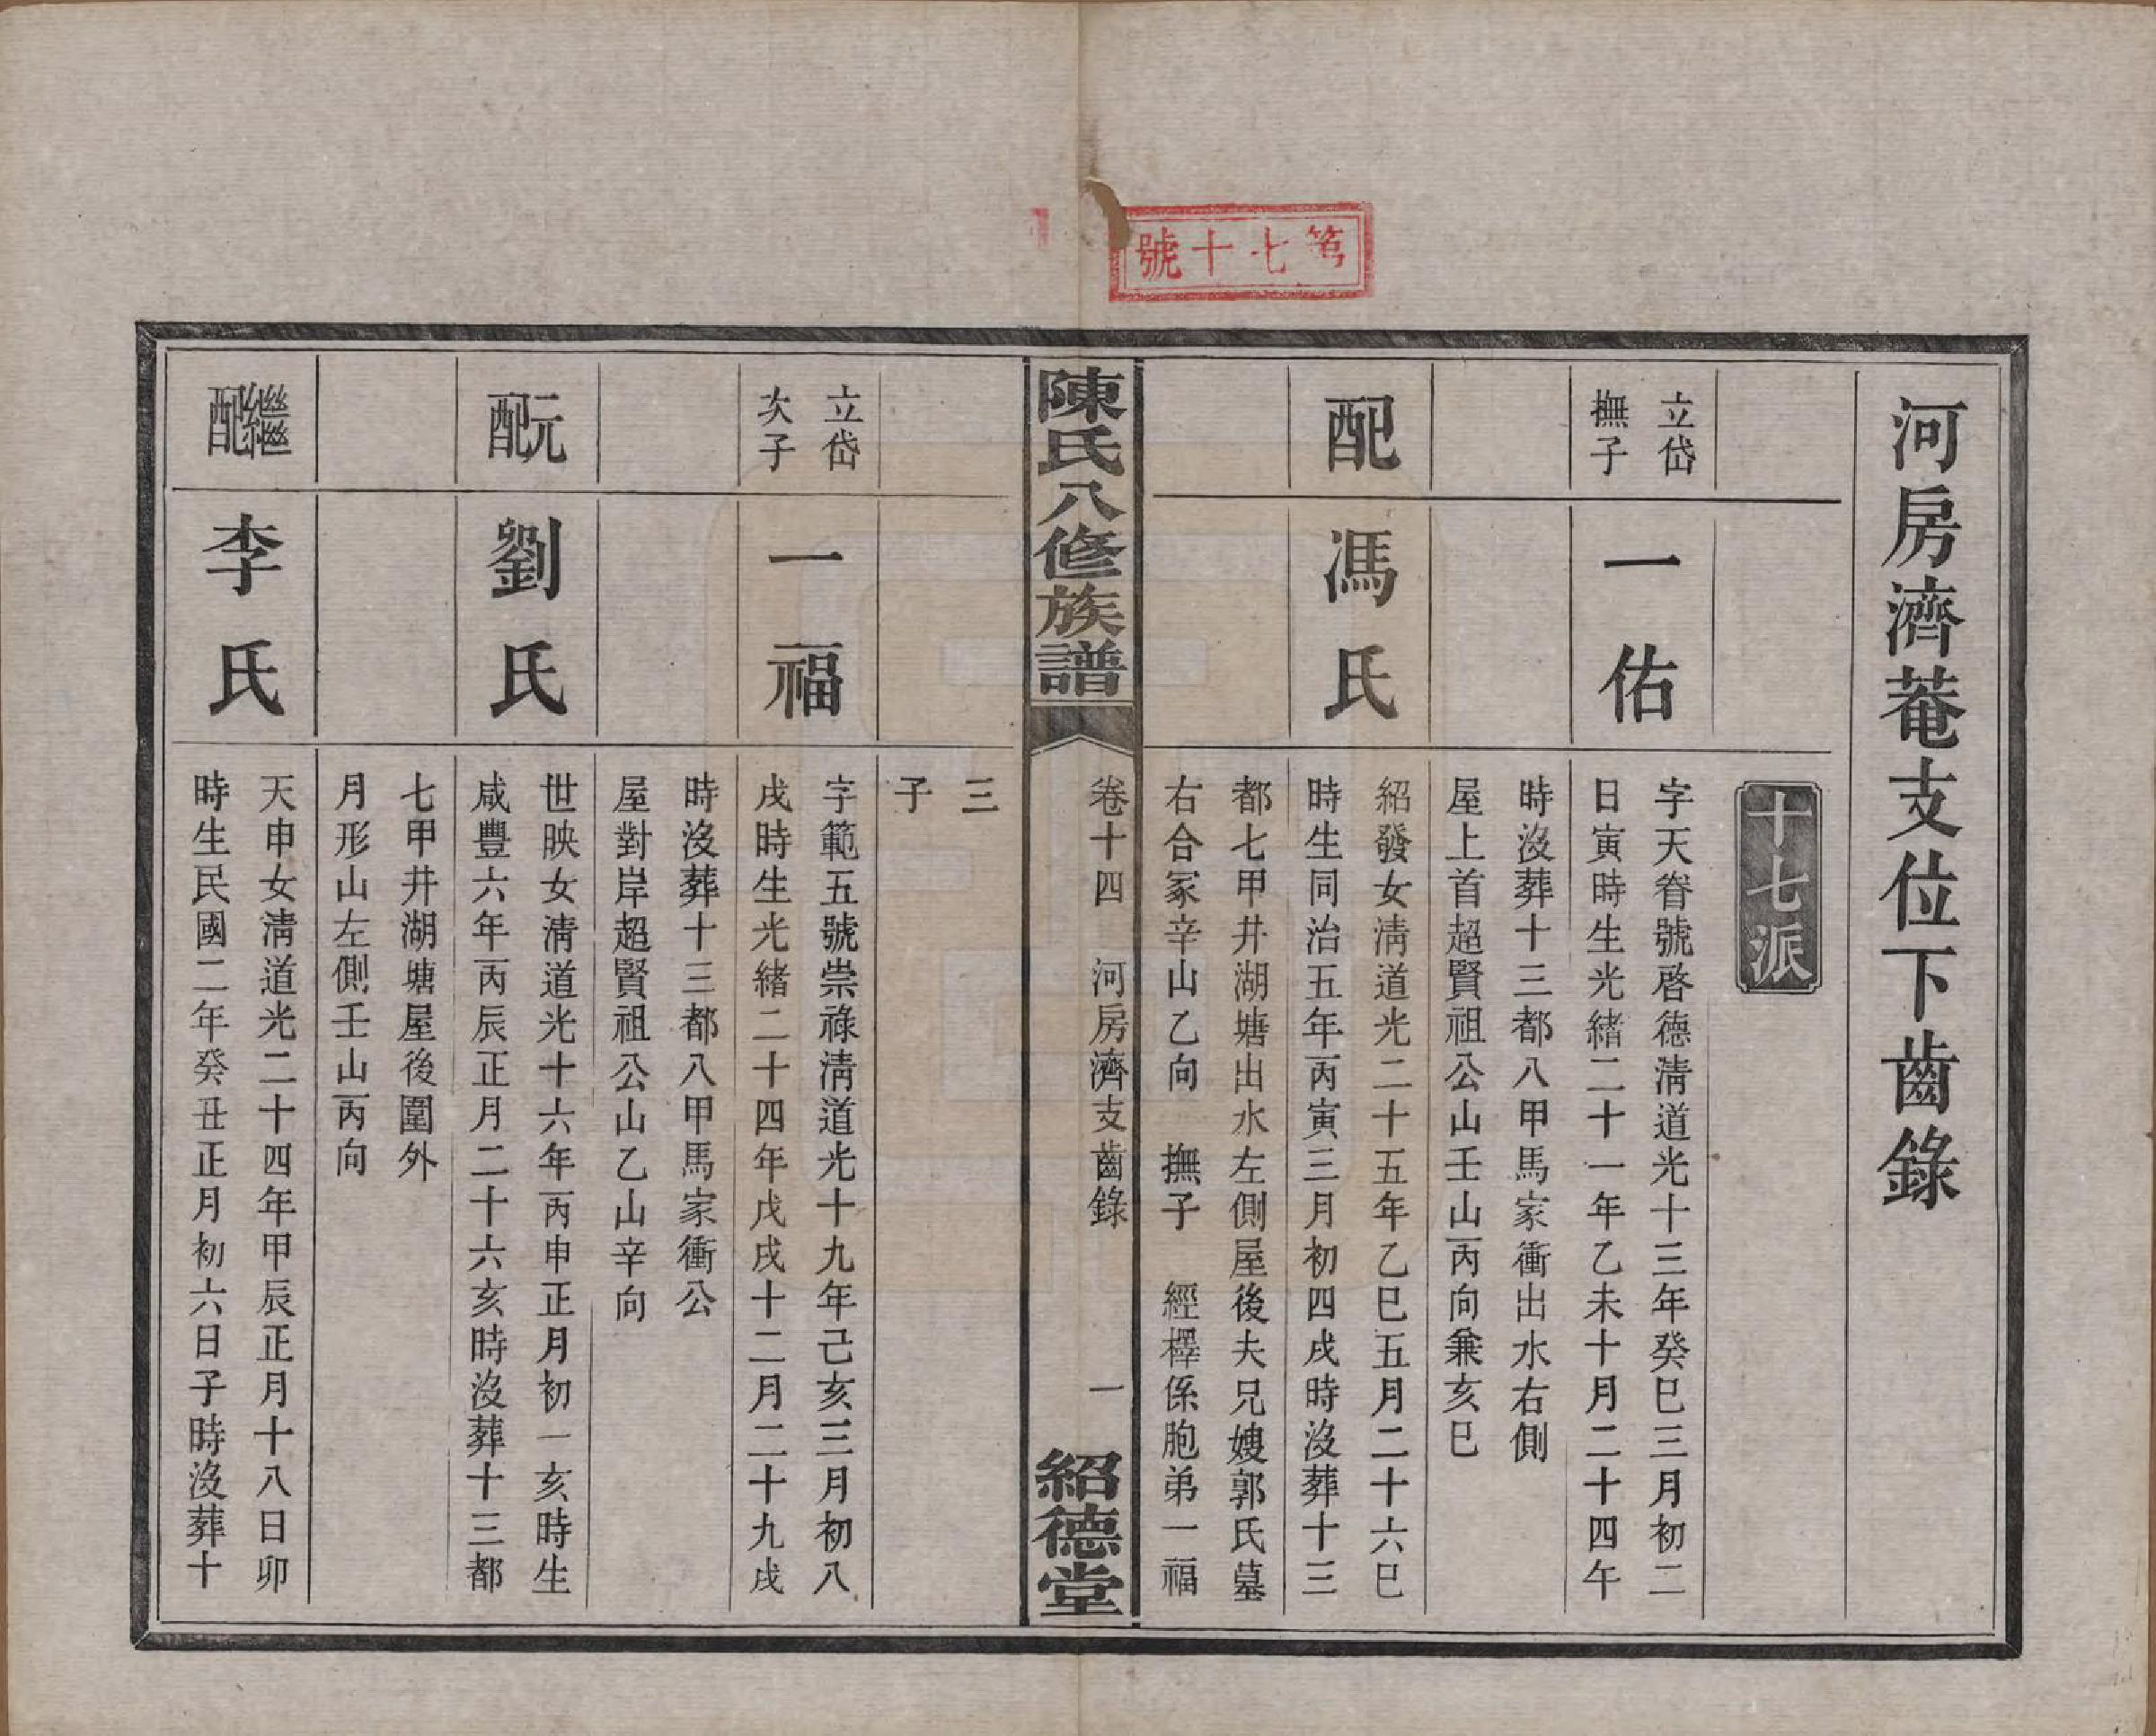 第七十號
河房濟菴支位下齒錄
十七派
立岱
撫子
一佑
字天眷號啓德淸道光十三年癸巳三月初二
日寅時生光緖二十一年乙未十月二十四午
時沒葬十三都八甲馬家衝出水右側
屋上首超賢祖公山壬山丙向兼亥巳
配
馮氏
紹發女淸道光二十五年乙巳五月二十六巳
時生同治五年丙寅三月初四戌時沒葬十三
都七甲井湖塘出水左側屋後夫兄嫂郭氏墓
右合冢辛山乙向 撫子 經檡係胞弟一福
陳氏八修族譜
卷十四 河房濟支齒錄
一
紹德堂
三
子
立岱
次子
一福
字範五號崇祿淸道光十九年己亥三月初八
戌時生光緖二十四年戊戌十二月二十九戌
時沒葬十三都八甲馬家衝公
屋對岸超賢祖公山乙山辛向
元配
劉氏
世映女淸道光十六年丙申正月初一亥時生
咸豐六年丙辰正月二十六亥時沒葬十三都
七甲井湖塘屋後圍外
月形山左側壬山丙向
繼配
李氏
天申女淸道光二十四年甲辰正月十八日卯
時生民國二年癸丑正月初六日子時沒葬十